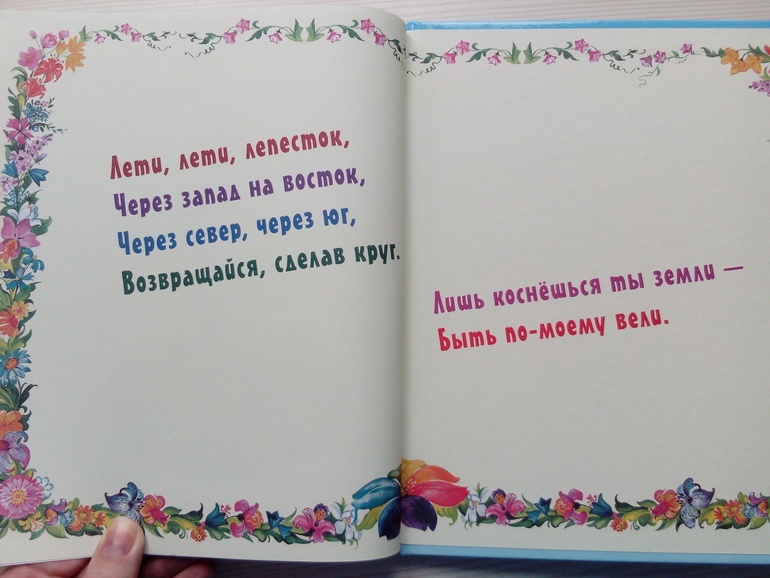 Лети, лети, лепесток,
Через запад на восток,
Через север, через юг,
Возвращайся, сделав круг.
Лишь коснёшься ты земли —
Быть по-моему вели.